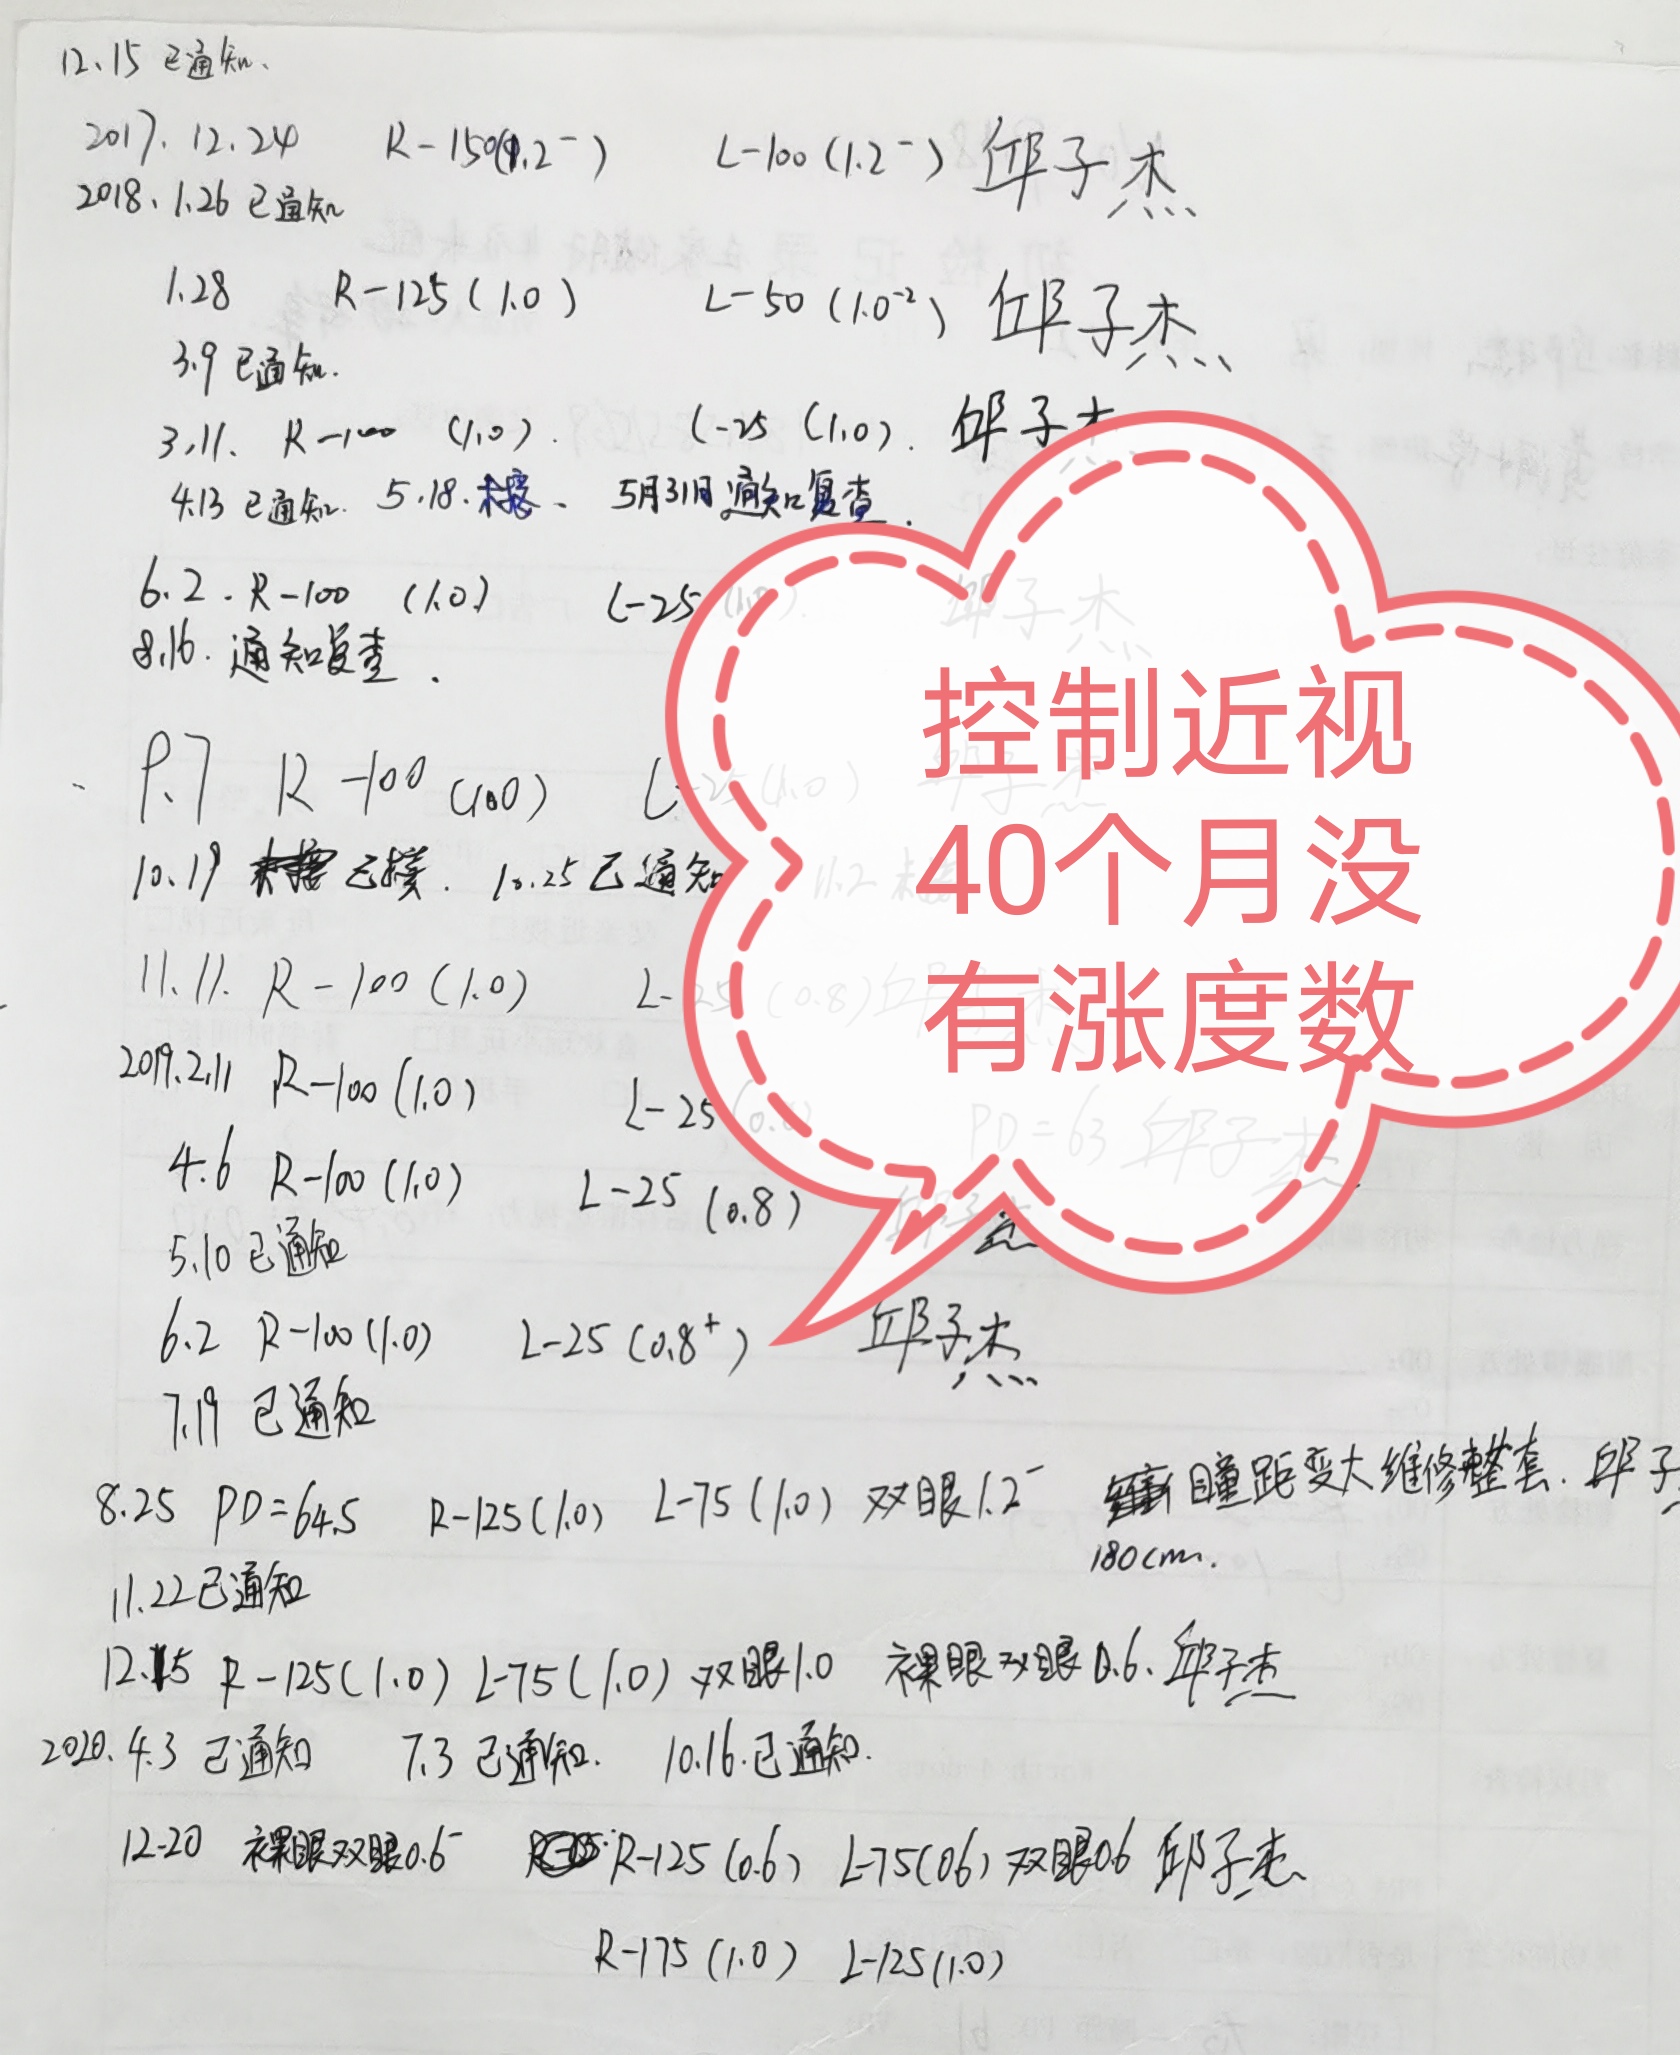 12.15 已通知.
2017.12.24 R-150(1.2⁻) L-100(1.2⁻) 邱子杰
2018.1.26 已通知
1.28 R-125(1.0) L-50(1.0⁻²) 邱子杰
3.9 已通知.
3.11. R-100 (1.0). L-25 (1.0). 邱子杰
4.13 已通知. 5.18.未接、 5月31日通知复查.
6.2. R-100 (1.0) L-25 (1.0). 邱子杰
8.16. 通知复查.
9.7 R-100 (1.0) L-25(1.0) 邱子杰
10.19 已接. 10.25已通知 11.2未接
11.11. R-100(1.0) L-25(0.8)邱子杰
2019.2.11 R-100(1.0) L-25 PD=63 邱子杰
4.6 R-100(1.0) L-25(0.8) 邱子杰
5.10 已通知
6.2 R-100(1.0) L-25(0.8⁺) 邱子杰
7.19 已通知
8.25 PD=64.5 R-125(1.0) L-75(1.0) 双眼1.2⁻ 瞳距变大维修整套. 邱子
180cm.
11.22已通知
12.15 R-125(1.0) L-75(1.0) 双眼1.0 裸眼双眼0.6. 邱子杰
2020.4.3 已通知 7.3 已通知. 10.16.已通知.
12-20 裸眼双眼0.6⁻ R-125(0.6) L-75(0.6) 双眼0.6 邱子杰
R-175(1.0) L-125(1.0)
控制近视
40个月没
有涨度数